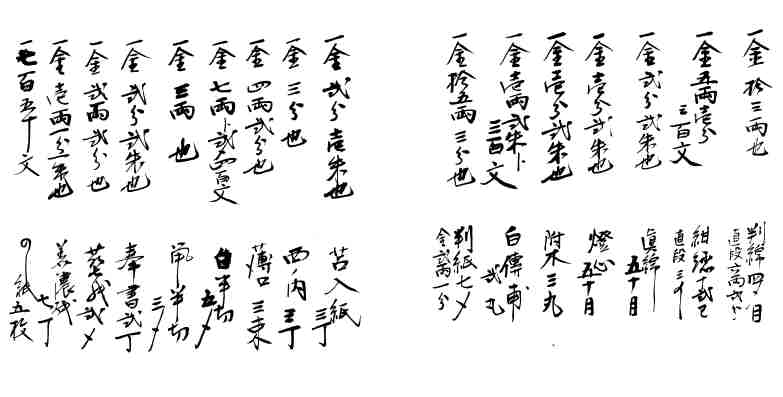 一金 拾三両也
判綿四〆目
直段
一金五両壱分
三百文
直段
一金 弐分弐朱也
真綿
五十目
一金 壱分弐朱也
燈心
五十目
一金壱分弐朱也
附木三丸
一金壱両弐朱ト
三百文
白傳甫
弐丸
一金拾五両三分也
判紙七〆
金弐両一分
一金 弐分壱朱也
苔入紙
三丁
一金 三分也
西ノ内 三丁
一金 四両弐分也
薄口 三束
一金 七両ト弐四百文
白半切
五〆
一金 三両 也
半切
三〆
一金 弐分弐朱也
奉書弐丁
一金 弐両弐分也
弐〆
一金 壱両一分二朱也
美濃紙
七丁
一七百五十文
のし紙五枚